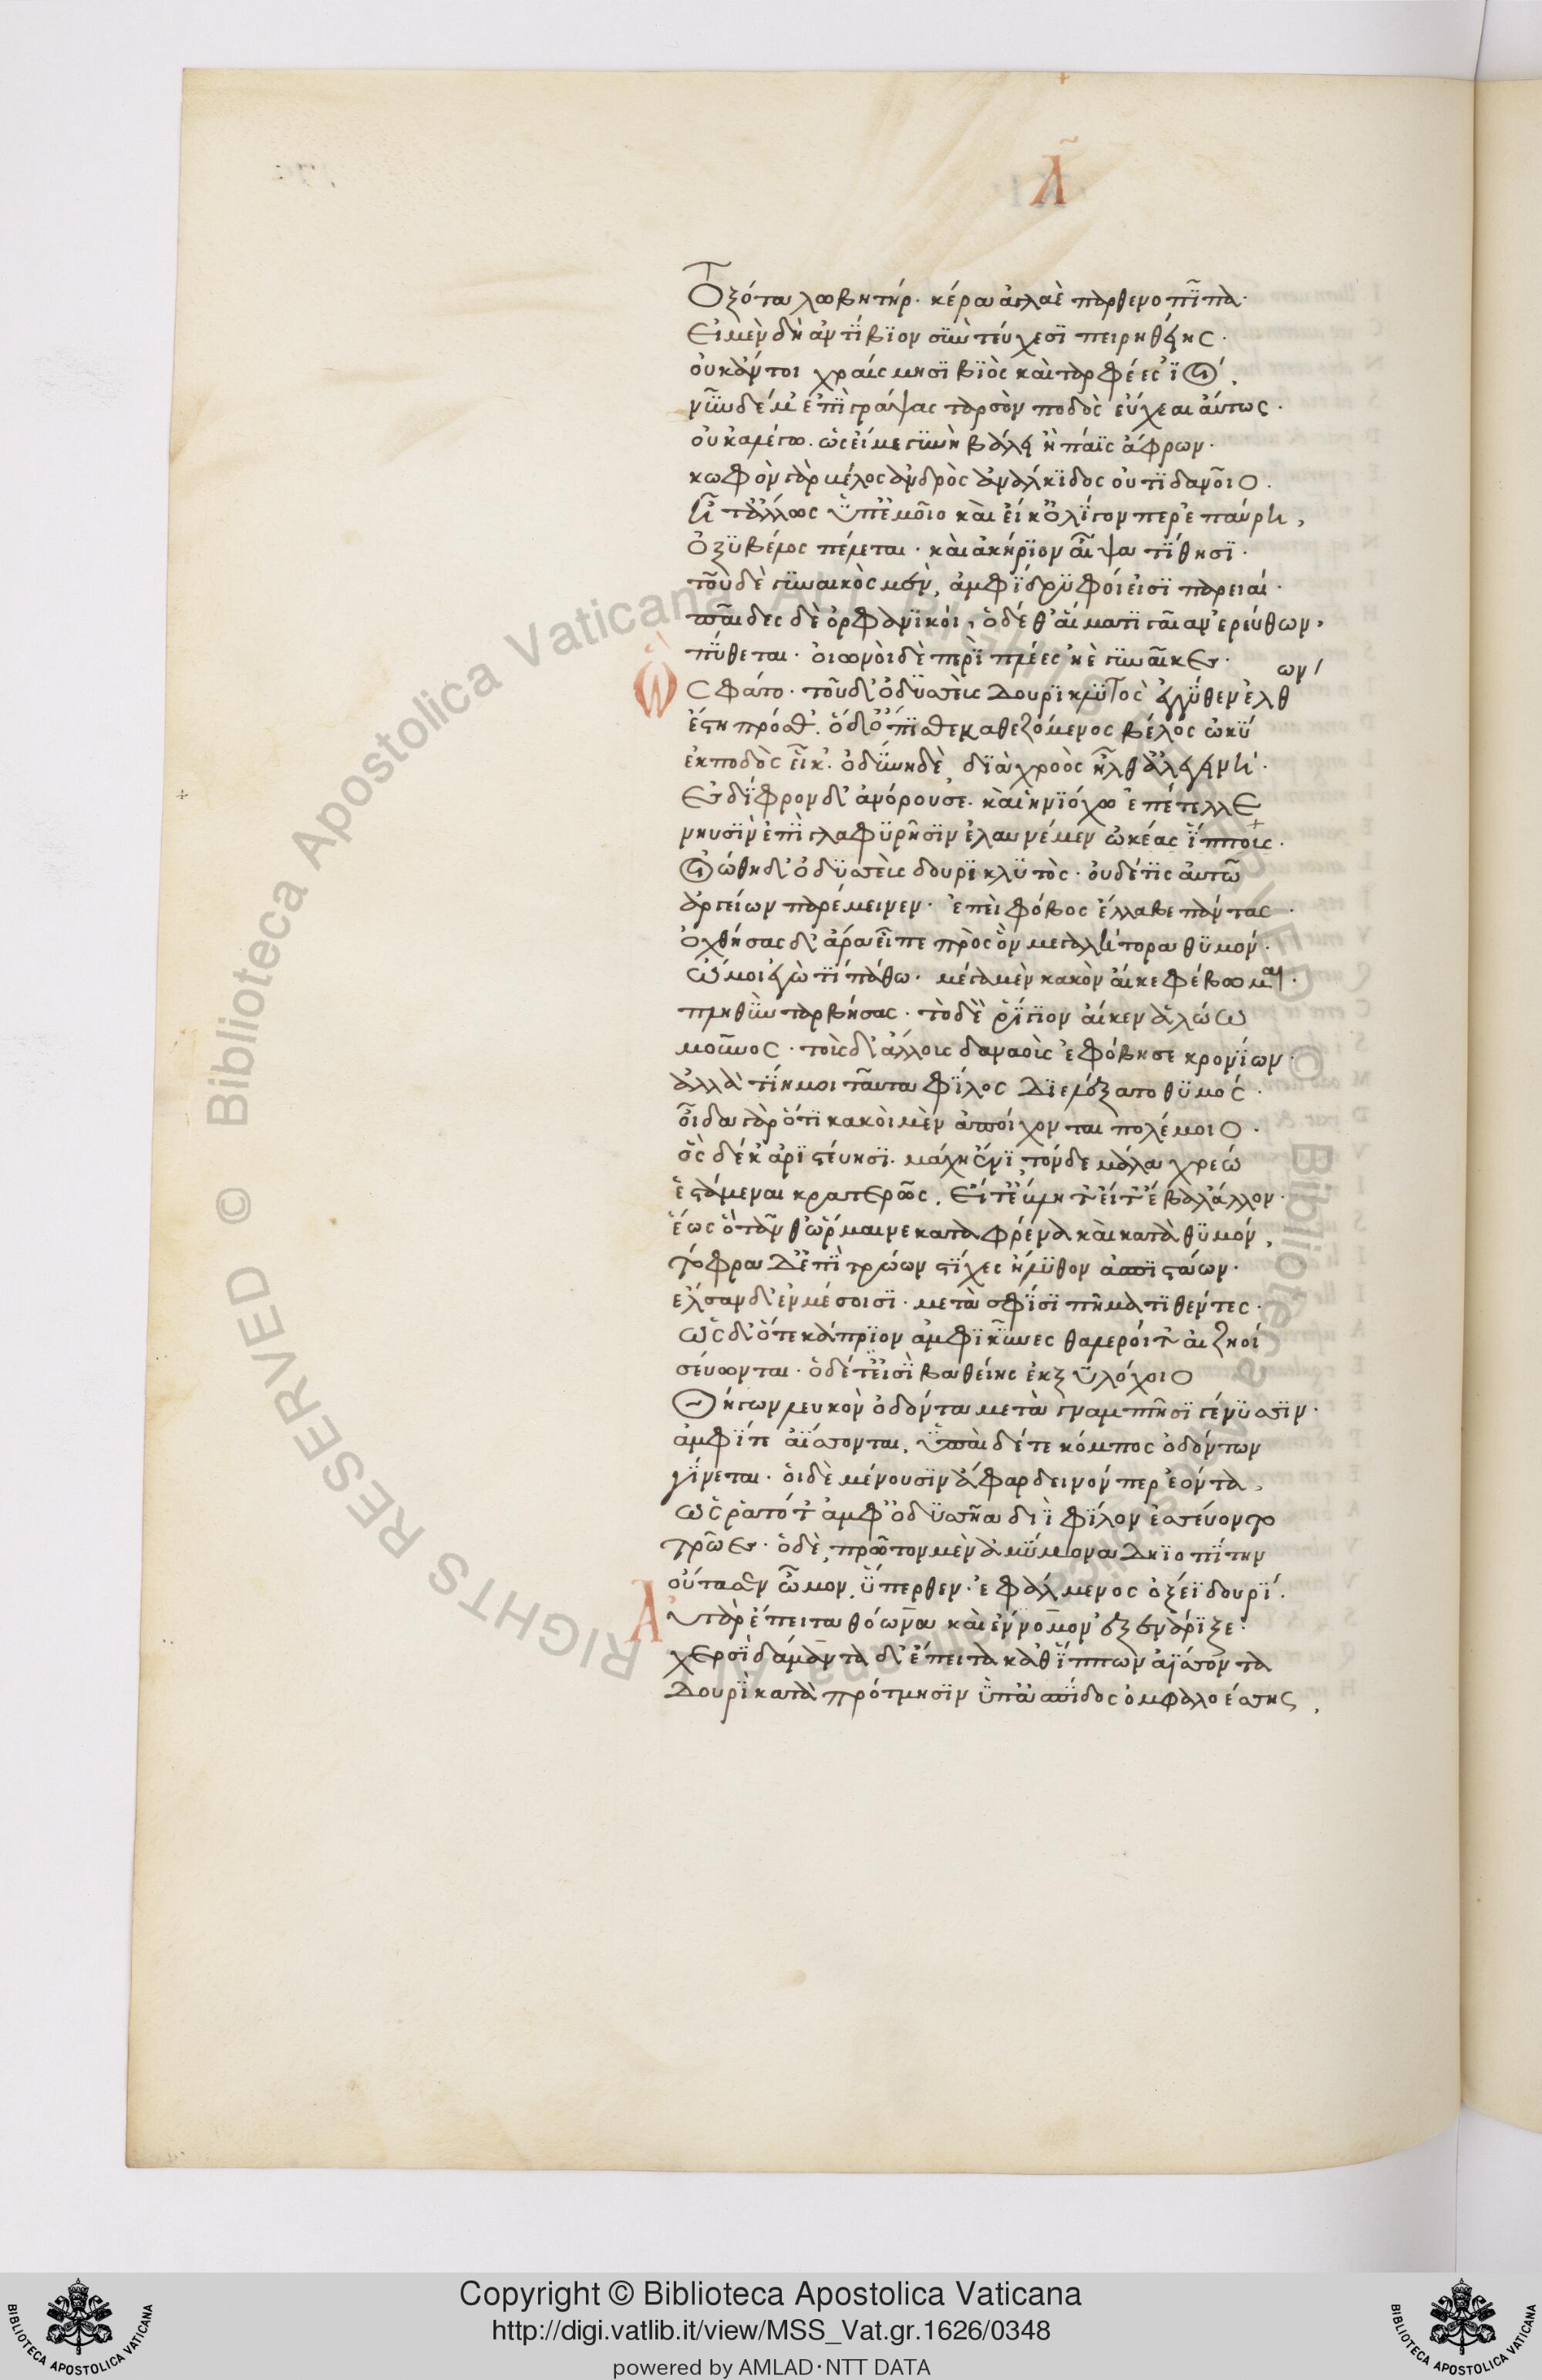 Λ
Τοξότα λωβητήρ· κέρα ἀγλαὲ παρθενοπῖπα·
Εἰ μὲν δὴ ἀντίβιον σὺν τεύχεσϊ πειρηθείης·
οὐκ ἄν τοι χραίσμησϊ βϊὸς καὶ ταρφέες ἰοί,
νῦν δέ μ' ἐπιγράψας ταρσὸν ποδὸς εὔχεαι αὔτως·
οὐκ ἀλέγω. ὡς εἴ με γϋνὴ βάλῃ ἢ πάϊς ἄφρων·
κωφὸν γὰρ βέλος ἀνδρὸς ἀνάλκιδος οὐτϊδανοῖο·
ἦ τ' ἄλλως ὑπ' ἐμοῖο καὶ εἴ κ' ὀλίγον περ ἐπαύρη,
Ὀξϋ βέλος πέλεται· καὶ ἀκήριον αἶψα τίθησϊ·
τοῦ δὲ γϋναικὸς μέν, ἀμφίδρϋφοί εἰσϊ παρειαί·
παῖδες δὲ ὀρφανϊκοί, ὁ δέ θ' αἵματϊ γαῖαν ἐρεύθων,
πύθεται· οἰωνοὶ δὲ περὶ πλέες ἠὲ γυναῖκες·
Ὣς φάτο· τοῦ δ' ὀδϋσεὺς δουρϊκλϋτὸς ἐγγύθεν ἐλθ
ων
ἔστη πρόσθ'. ὁ δ' ὄπισθε καθεζόμενος βέλος ὠκϋ
ἐκ ποδὸς εἷλκ'. ὀδύνη δὲ διὰ χροὸς ἦλθ' ἀλεγεινή·
Ἐς δίφρον δ' ἀνόρουσε. καὶ ἡνϊόχω ἐπέτελλε
νηυσὶν ἐπὶ γλαφϋρῆσϊν ἐλαυνέμεν ὠκέας ἵπποις·
Οἰώθη δ' ὀδϋσεὺς δουρϊκλϋτὸς· οὐδέ τις αὐτῶ
ἀργείων παρέμεινεν· ἐπεὶ φόβος ἔλλαβε πάντας·
ὀχθήσας δ' ἄρα εἶπε πρὸς ὃν μεγαλήτορα θϋμόν·
Ὤ μοι ἐγὼ τί πάθω· μέγα μὲν κακὸν αἴ κε φέβωμαι·
πληθὺν ταρβήσας· τὸ δὲ ῥίγϊον αἴ κεν ἁλώω
μοῦνος· τοὺς δ' ἄλλους δαναοὺς ἐφόβησε κρονίων·
ἀλλὰ τίη μοι ταῦτα φίλος διελέξατο θϋμός·
οἶδα γὰρ ὅτϊ κακοὶ μὲν ἀποίχονται πολέμοιο·
ὃς δέ κ' ἀρϊστεύησϊ. μάχη ἔνϊ, τόνδε μάλα χρεώ
ἑστάμεναι κρατερῶς. εἴ τ' ἔβλητ' εἴ τ' ἔβαλ' ἄλλον·
ἕως ὁ ταῦθ' ὥρμαινε κατὰ φρένα καὶ κατὰ θϋμόν,
τόφρα δ' ἐπὶ τρώων στίχες ἤλϋθον ἀσπιστάων·
ἔλσαν δ' ἐν μέσοισϊ· μετὰ σφίσϊ πῆμα τϊθέντες·
ὡς δ' ὅτε κάπρϊον ἀμφὶ κύνες θαλεροί τ' αἰζηοί
σεύωνται· ὁ δέ τ' εἶσϊ βαθείης ἐκ ξϋλόχοιο
Θήγων λευκὸν ὀδόντα μετὰ γναμπτῆσϊ γένϋσσϊν·
ἀμφὶ τε ἀΐσσονται, ὑπαὶ δέ τε κόμπος ὀδόντων
γίνεται· οἱ δὲ μένουσϊν ἄφαρ δεινόν περ ἐόντα,
ὥς ῥα τότ' ἀμφ' ὀδϋσῆα διΐ φίλον ἐσσεύοντο
τρῶες· ὁ δὲ πρῶτον μὲν ἀμύμονα δηϊοπίτην
οὔτασεν ὦμον, ὕπερθεν· ἐφάλμενος ὀξέϊ δουρί·
Αὐτὰρ ἔπειτα θόωνα καὶ ἔννομον ἐξενάρϊξε·
χερσϊδάμαντα δ' ἔπειτα καθ' ἵππων ἀΐσσοντα
Δουρὶ κατὰ πρότμησϊν ὑπ' ἀσπίδος ὀμφαλοέσσης,
Copyright © Biblioteca Apostolica Vaticana
http://digi.vatlib.it/view/MSS_Vat.gr.1626/0348
powered by AMLAD·NTT DATA
BIBLIOTECA APOSTOLICA VATICANA
BIBLIOTECA APOSTOLICA VATICANA
© Biblioteca Apostolica Vaticana ALL RIGHTS RESERVED © Biblioteca Apostolica Vaticana ALL RIGHTS RESERVED